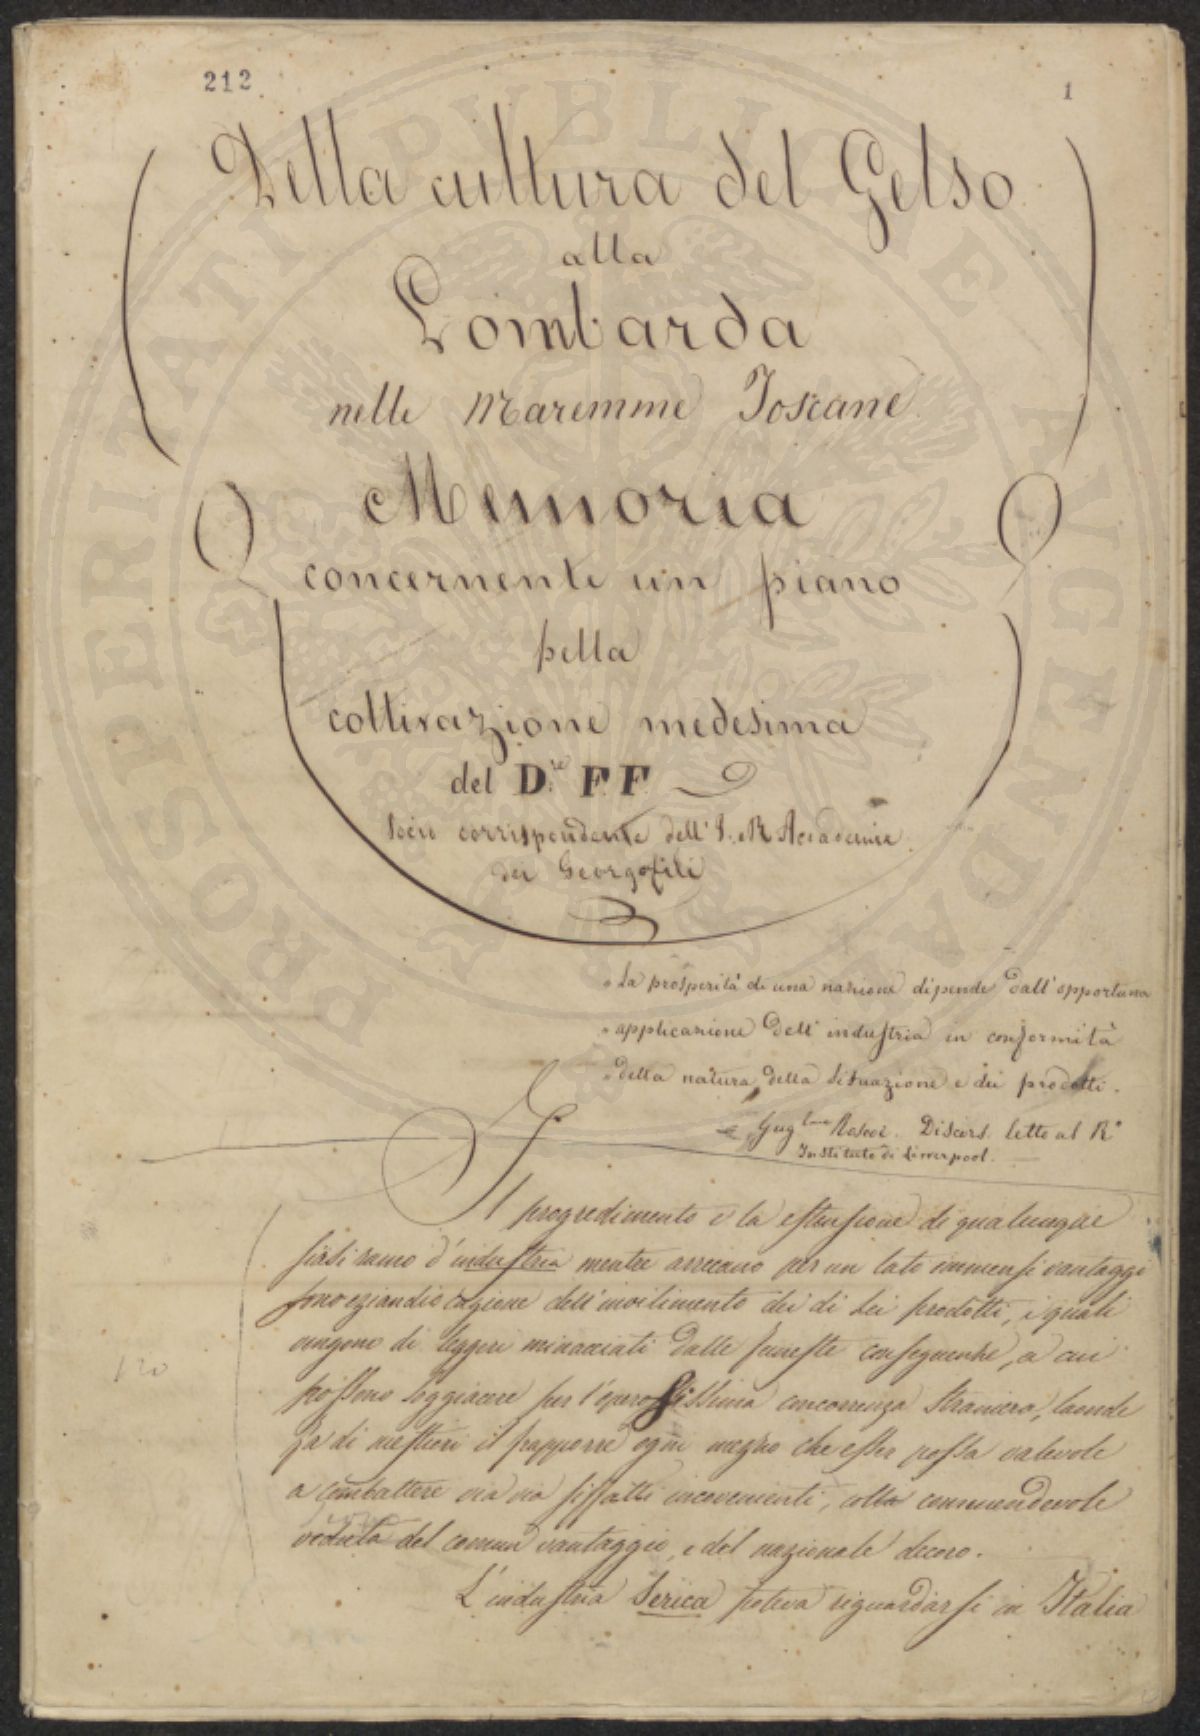 212
1
Della cultura del Gelso
alla
Lombarda
nelle Maremme Toscane
Memoria
concernente un piano
pella
coltivazione medesima
del D.re F. F.
Socio corrispondente dell' I. R. Accademia
dei Georgofili
" La prosperità di una nazione dipende dall' opportuna
" applicazione dell' industria in conformità
" della natura, della situazione e dei prodotti.
Gugl.mo Roscoe. Discors. letto al R.o
Instituto di Liverpool.
Il progredimento e la estensione di qualunque
siasi ramo d'industria mentre arrecano per un lato immensi vantaggi
sono eziandio cagione dell' invilimento dei di lei prodotti, i quali
vengono di leggeri minacciati dalle funeste conseguenze, a cui
possono soggiacere per l'operosissima concorrenza straniera, laonde
fa di mestieri il frapporre ogni mezzo che esser possa valevole
a combattere via via siffatti inconvenienti, colla commendevole
veduta del comun vantaggio, e del nazionale decoro.
120
L'industria Serica poteva riguardarsi in Italia
PROSPERITATI PVBLICAE AVGENDAE